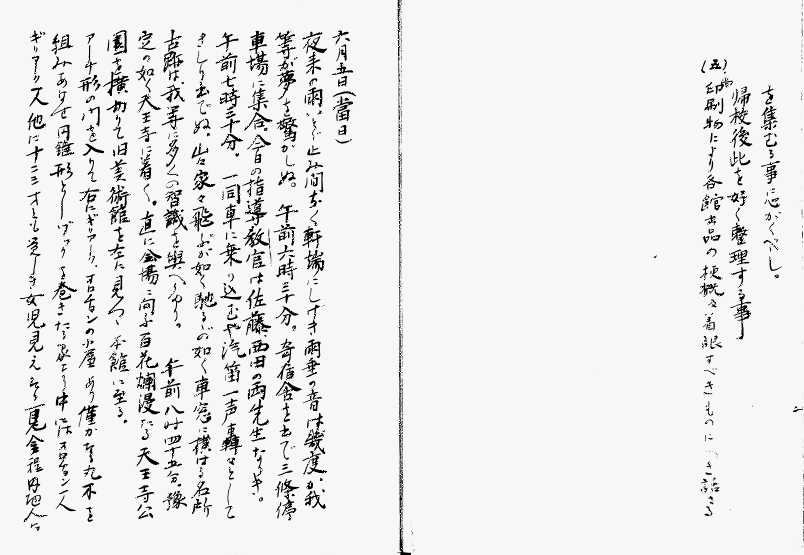 を集むる事に心がくべし。
帰校後此を好く整理する事
(五)印刷物により各館出品の梗概を着眼すべきものにつき話さる
六月五日(當日)
夜来の雨いまだ止み間なく軒端にしげき雨垂の音は幾度か我
等が夢を驚かしぬ。午前六時三十分。寄宿舎を出で三條停
車場に集合。今日の指導教官は佐藤西田の両先生なりき。
午前七時三十分。一同車に乗り込むや汽笛一声轟々として
きしり出でぬ。山も家も飛ぶが如く馳るが如く車窓に横はる名所
古跡は我等に多くの智識を與へたり。午前八時四十五分。豫
定の如く天王寺に着く。直に会場に向ふ百花爛漫たる天王寺公
園を横切りて旧美術館を左に見つゝ本館に至る。
アーチ形の門を入りて右にギリアーク、オロチョンの小屋あり僅かなる丸木を
組みあはせ円錐形とし
を巻きたる
中にはオロチョン一人
ギリアーク人他に十二三才とも
女児見え